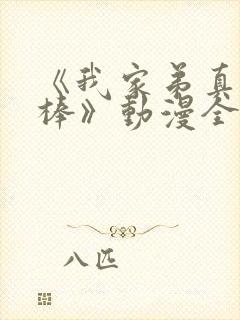 《我家弟真
棒》動漫全
八匹